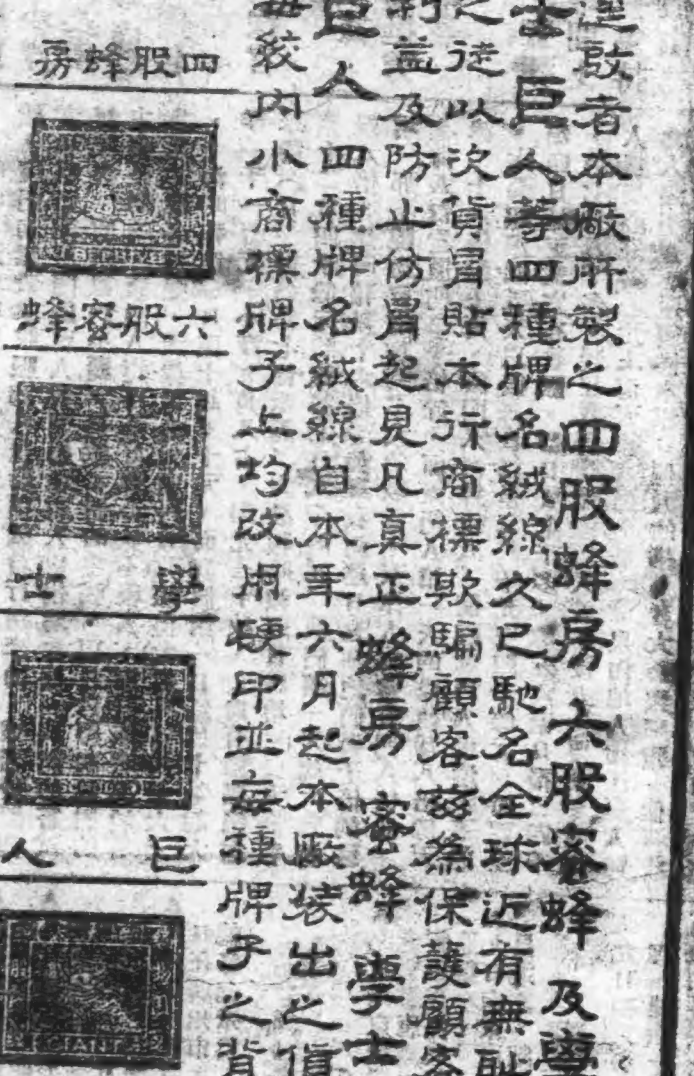 逕啟者本廠所製之四股蜂房 六股蜜蜂 及學
士 巨人等四種牌名絨線久已馳名全球近有無恥
之徒以次貨冒貼本行商標欺騙顧客茲為保護顧客
利益及防止仿冒起見凡真正 蜂房 蜜蜂 學士
巨人 四種牌名絨線自本年六月起本廠裝出之貨
每絞內小商標牌子上均改用硬印並每種牌子之背
房蜂股四
BEEHIVE
蜂蜜股六
士學
人巨
GIANT